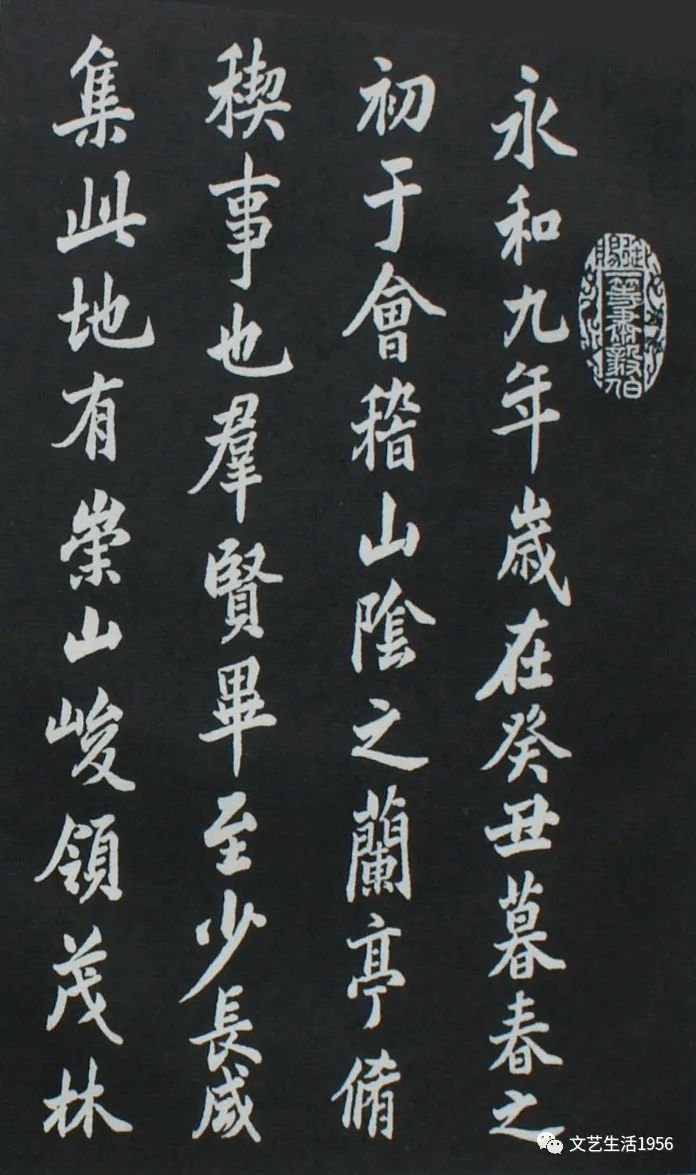 御賜一等肅毅伯
永和九年歲在癸丑暮春之
初于會稽山陰之蘭亭脩
稧事也羣賢畢至少長咸
集此地有崇山峻領茂林
文艺生活1956